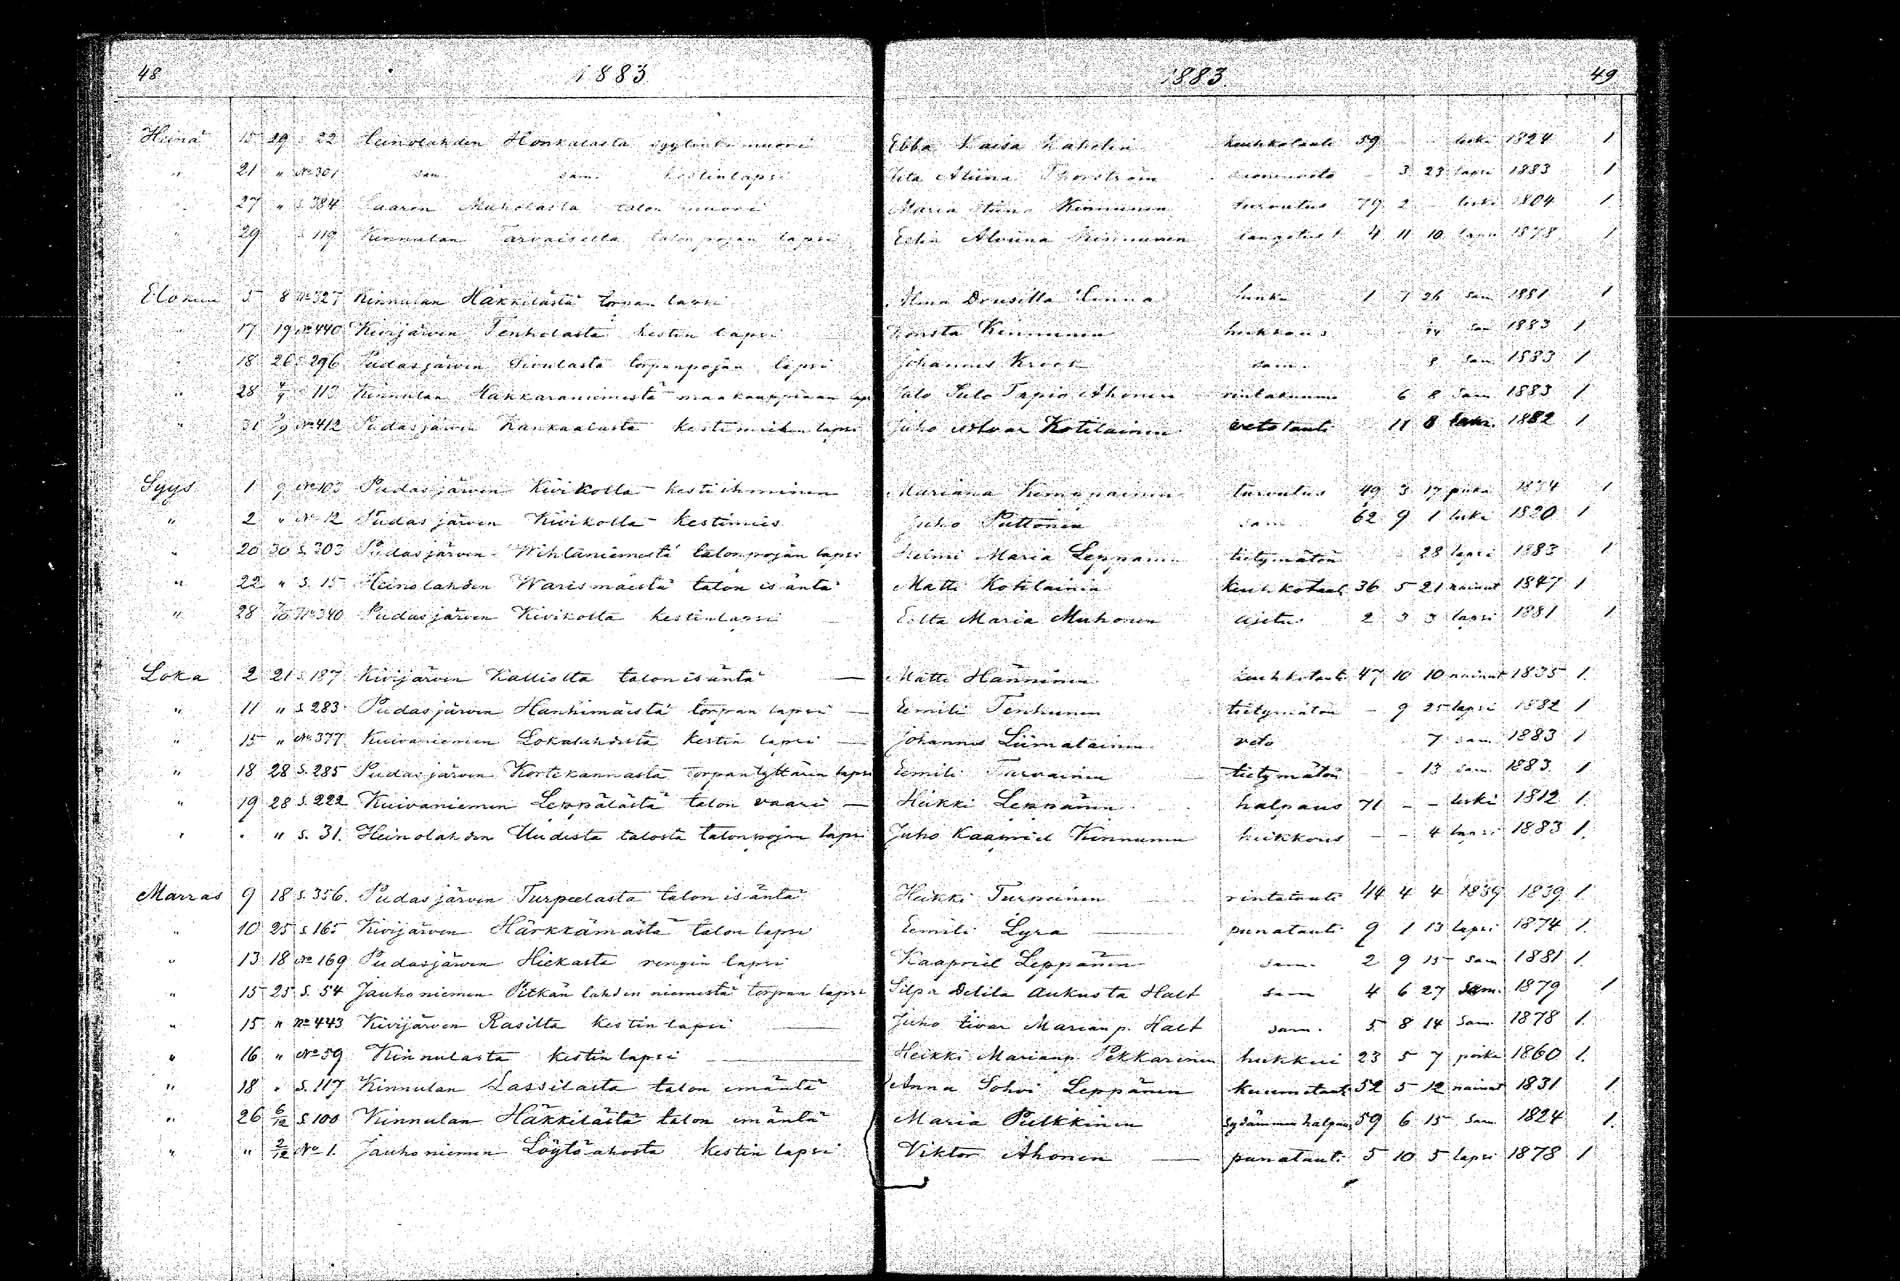 48 1883 1883. 49
Heinä 15 29 s. 22 Heinolahden Honkalasta muori Ebba Kaisa keuhkotauti 59 - - leski 1824 1
" 21 " No 301 sam. sam. kestinlapsi Aliina 3 23 lapsi 1883 1
27 " s. 384 Saaren Muholasta talon muori Maria Stiina Kinnunen turvotus 79 2 - leski 1804 1
29 119 Kinnulan Tarvaiselta talonpojan lapsi Eelin Alviina Kinnunen 4 11 10 lapsi 1878 1
Elokuu 5 8 No 327 Kinnulan Häkkilästä torpan lapsi Alma Drusilla 1 7 26 sam 1881 1
" 17 19 No 440 Kivijärven Tenholasta kestin lapsi Kinnunen heikkous 14 sam 1883 1
" 18 26 s. 296 Pudasjärven Sivulasta torpanpojan lapsi Johannes Krook sam. 8 sam 1883 1
" 28 s. 113 Kinnulan Hakkaraniemestä maakauppiaan Salo Sulo Tapio Ahonen 6 8 sam 1883 1
" 31 No 412 Pudasjärven Kankaalasta kestimiehen lapsi Juho Kotilainen vetotauti 11 8 1882 1
Syys 1 9 No 103 Pudasjärven Kivikolla kesti ihminen Mariana turvotus 49 3 17 piika 1834 1
" 2 " No 12 Pudasjärven Kivikolla kestimies Juho Puttonen sam 62 9 1 leski 1820 1
" 20 30 s. 303 Pudasjärven Wihtaniemestä talonpojan lapsi Helmi Maria Leppänen tietymätön 28 lapsi 1883 1
" 22 " s. 15 Heinolahden Warismäestä talon isäntä Matti Kotilainen keuhkotaut 36 5 21 nainut 1847 1
" 28 7/10 No 340 Pudasjärven Kivikolta kestinlapsi Maria Muhonen ajetus 2 3 3 lapsi 1881 1
Loka 2 21 s. 187 Kivijärven Kalliolta talon isäntä — Matti Hänninen keuhkotauti 47 10 10 nainut 1835 1.
" 11 " s. 283 Pudasjärven Hanhimäestä torpan lapsi — Eemili Tenhunen tietymätön - 9 25 lapsi 1882 1
" 15 " No 377 Kuivaniemen Lokalahdesta kestin lapsi — Johannes Liimatainen veto 7 sam 1883 1
" 18 28 s. 285 Pudasjärven Kortekannasta torpantyttären lapsi Eemili Tarvainen tietymätön - - 13 sam. 1883. 1
" 19 28 s. 222 Kuivaniemen Leppälästä talon vaari — Heikki Leppänen halpaus 71 - - leski 1812 1.
" " " s. 31. Heinolahden Uudista talosta talonpojan lapsi Juho Kaapriel Kinnunen heikkous - - 4 lapsi 1883 1.
Marras 9 18 s. 356. Pudasjärven Turpeelasta talon isäntä Heikki Turpeinen rintatauti 44 4 4 1839 1839 1.
" 10 25 s. 165 Kivijärven Härkkämästä talon lapsi Eemili Lyra — punatauti 9 1 13 lapsi 1874 1.
" 13 18 No 169 Pudasjärven Hiekasta rengin lapsi Kaapriel Leppänen sam. 2 9 15 sam 1881 1.
" 15 25 s. 54 Jauhoniemen Pitkän lahden niemestä torpan lapsi Silpa Delila Aukusta Halt sam 4 6 27 sam. 1879 1
" 15 " No 443 Kivijärven Rasilta kestin lapsi — Juho Iivar Marian p. Halt sam. 5 8 14 sam. 1878 1.
" 16 " No 59 Kinnulasta kestin lapsi — Heikki Marianp. Pekkarinen hukkui 23 5 7 poika 1860 1.
" 18 " s. 117 Kinnulan Lassilasta talon emäntä Anna Sohvi Leppänen kuumetauti 52 5 12 nainut 1831 1
" 26 6/12 s. 100 Kinnulan Häkkilästä talon emäntä Maria Pulkkinen sydämmen halpaus 59 6 15 sam 1824 1.
" " 2/12 No 1. Jauhoniemen Löytöahosta kestin lapsi Viktor Ahonen — punatauti 5 10 5 lapsi 1878 1